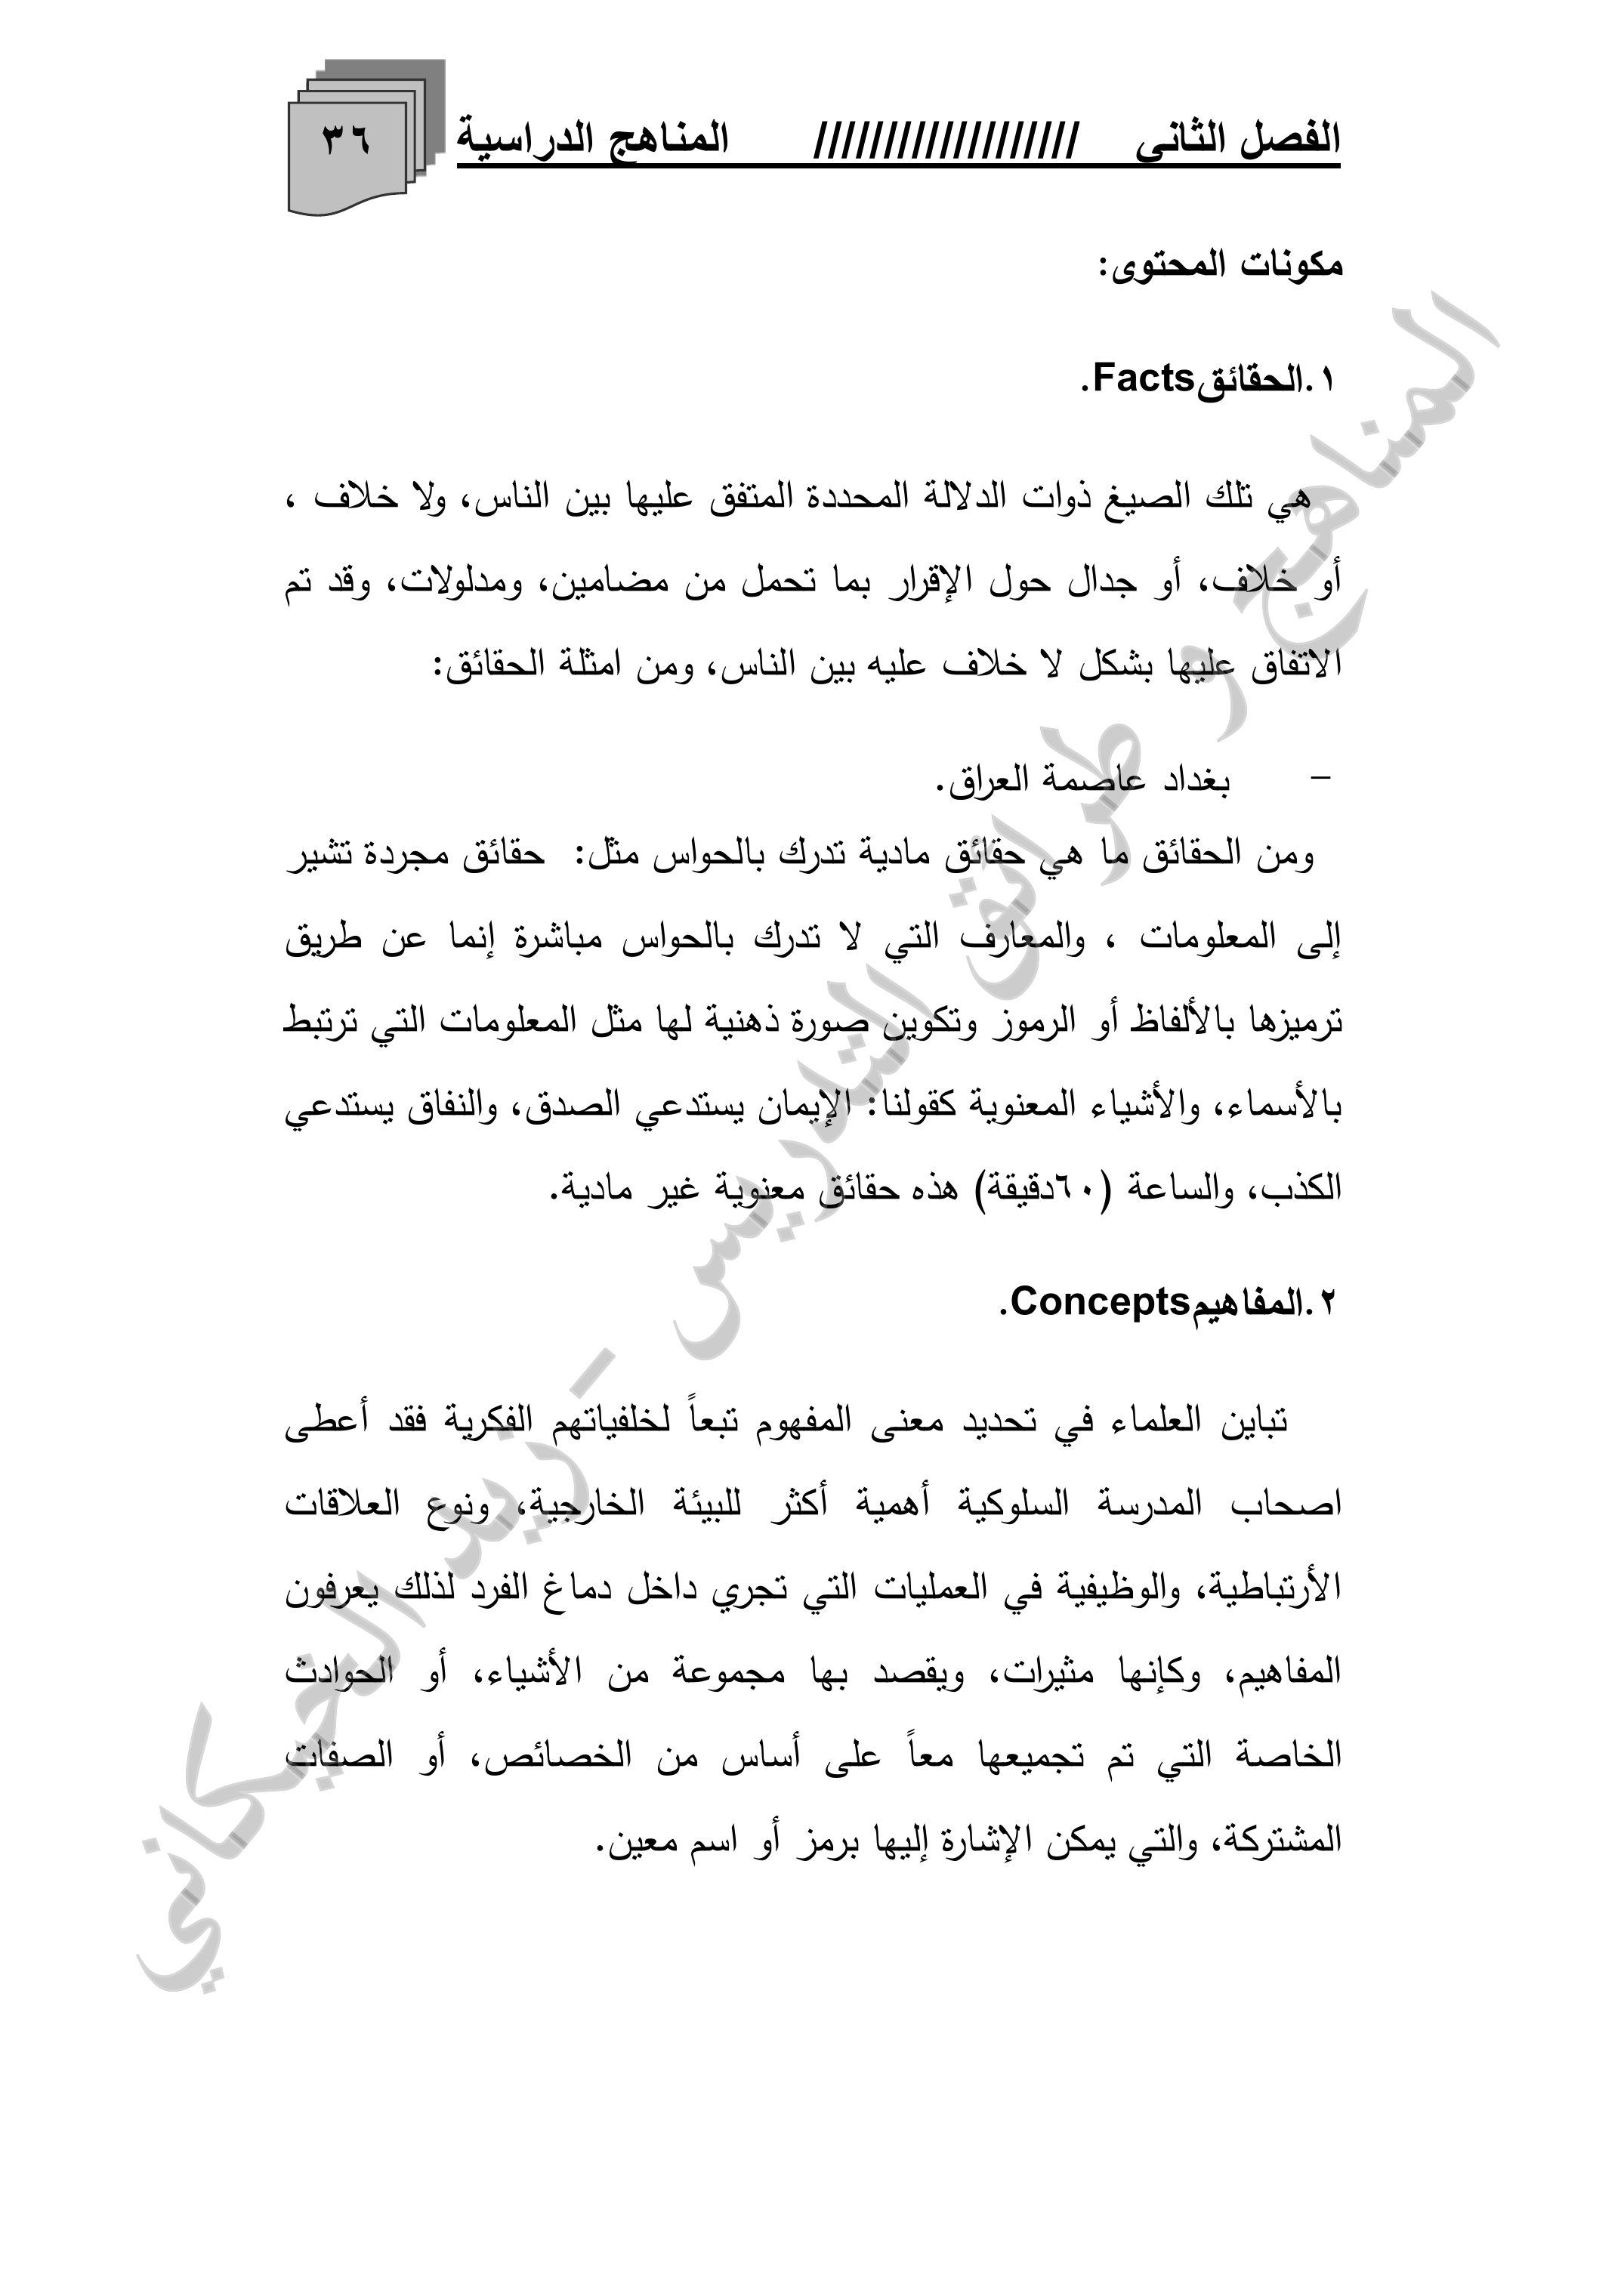 الفصل الثاني /////////////////// المناهج الدراسية ٣٦
مكونات المحتوى:
١.الحقائقFacts.
هي تلك الصيغ ذوات الدلالة المحددة المتفق عليها بين الناس، ولا خلاف ،
أو خلاف، أو جدال حول الإقرار بما تحمل من مضامين، ومدلولات، وقد تم
الاتفاق عليها بشكل لا خلاف عليه بين الناس، ومن امثلة الحقائق:
- بغداد عاصمة العراق.
ومن الحقائق ما هي حقائق مادية تدرك بالحواس مثل: حقائق مجردة تشير
إلى المعلومات ، والمعارف التي لا تدرك بالحواس مباشرة إنما عن طريق
ترميزها بالألفاظ أو الرموز وتكوين صورة ذهنية لها مثل المعلومات التي ترتبط
بالأسماء، والأشياء المعنوية كقولنا: الإيمان يستدعي الصدق، والنفاق يستدعي
الكذب، والساعة (٦٠دقيقة) هذه حقائق معنوية غير مادية.
٢.المفاهيمConcepts.
تباين العلماء في تحديد معنى المفهوم تبعاً لخلفياتهم الفكرية فقد أعطى
اصحاب المدرسة السلوكية أهمية أكثر للبيئة الخارجية، ونوع العلاقات
الأرتباطية، والوظيفية في العمليات التي تجري داخل دماغ الفرد لذلك يعرفون
المفاهيم، وكإنها مثيرات، ويقصد بها مجموعة من الأشياء، أو الحوادث
الخاصة التي تم تجميعها معاً على أساس من الخصائص، أو الصفات
المشتركة، والتي يمكن الإشارة إليها برمز أو اسم معين.
المناهج و طرائق التدريس - زيد الخيكاني